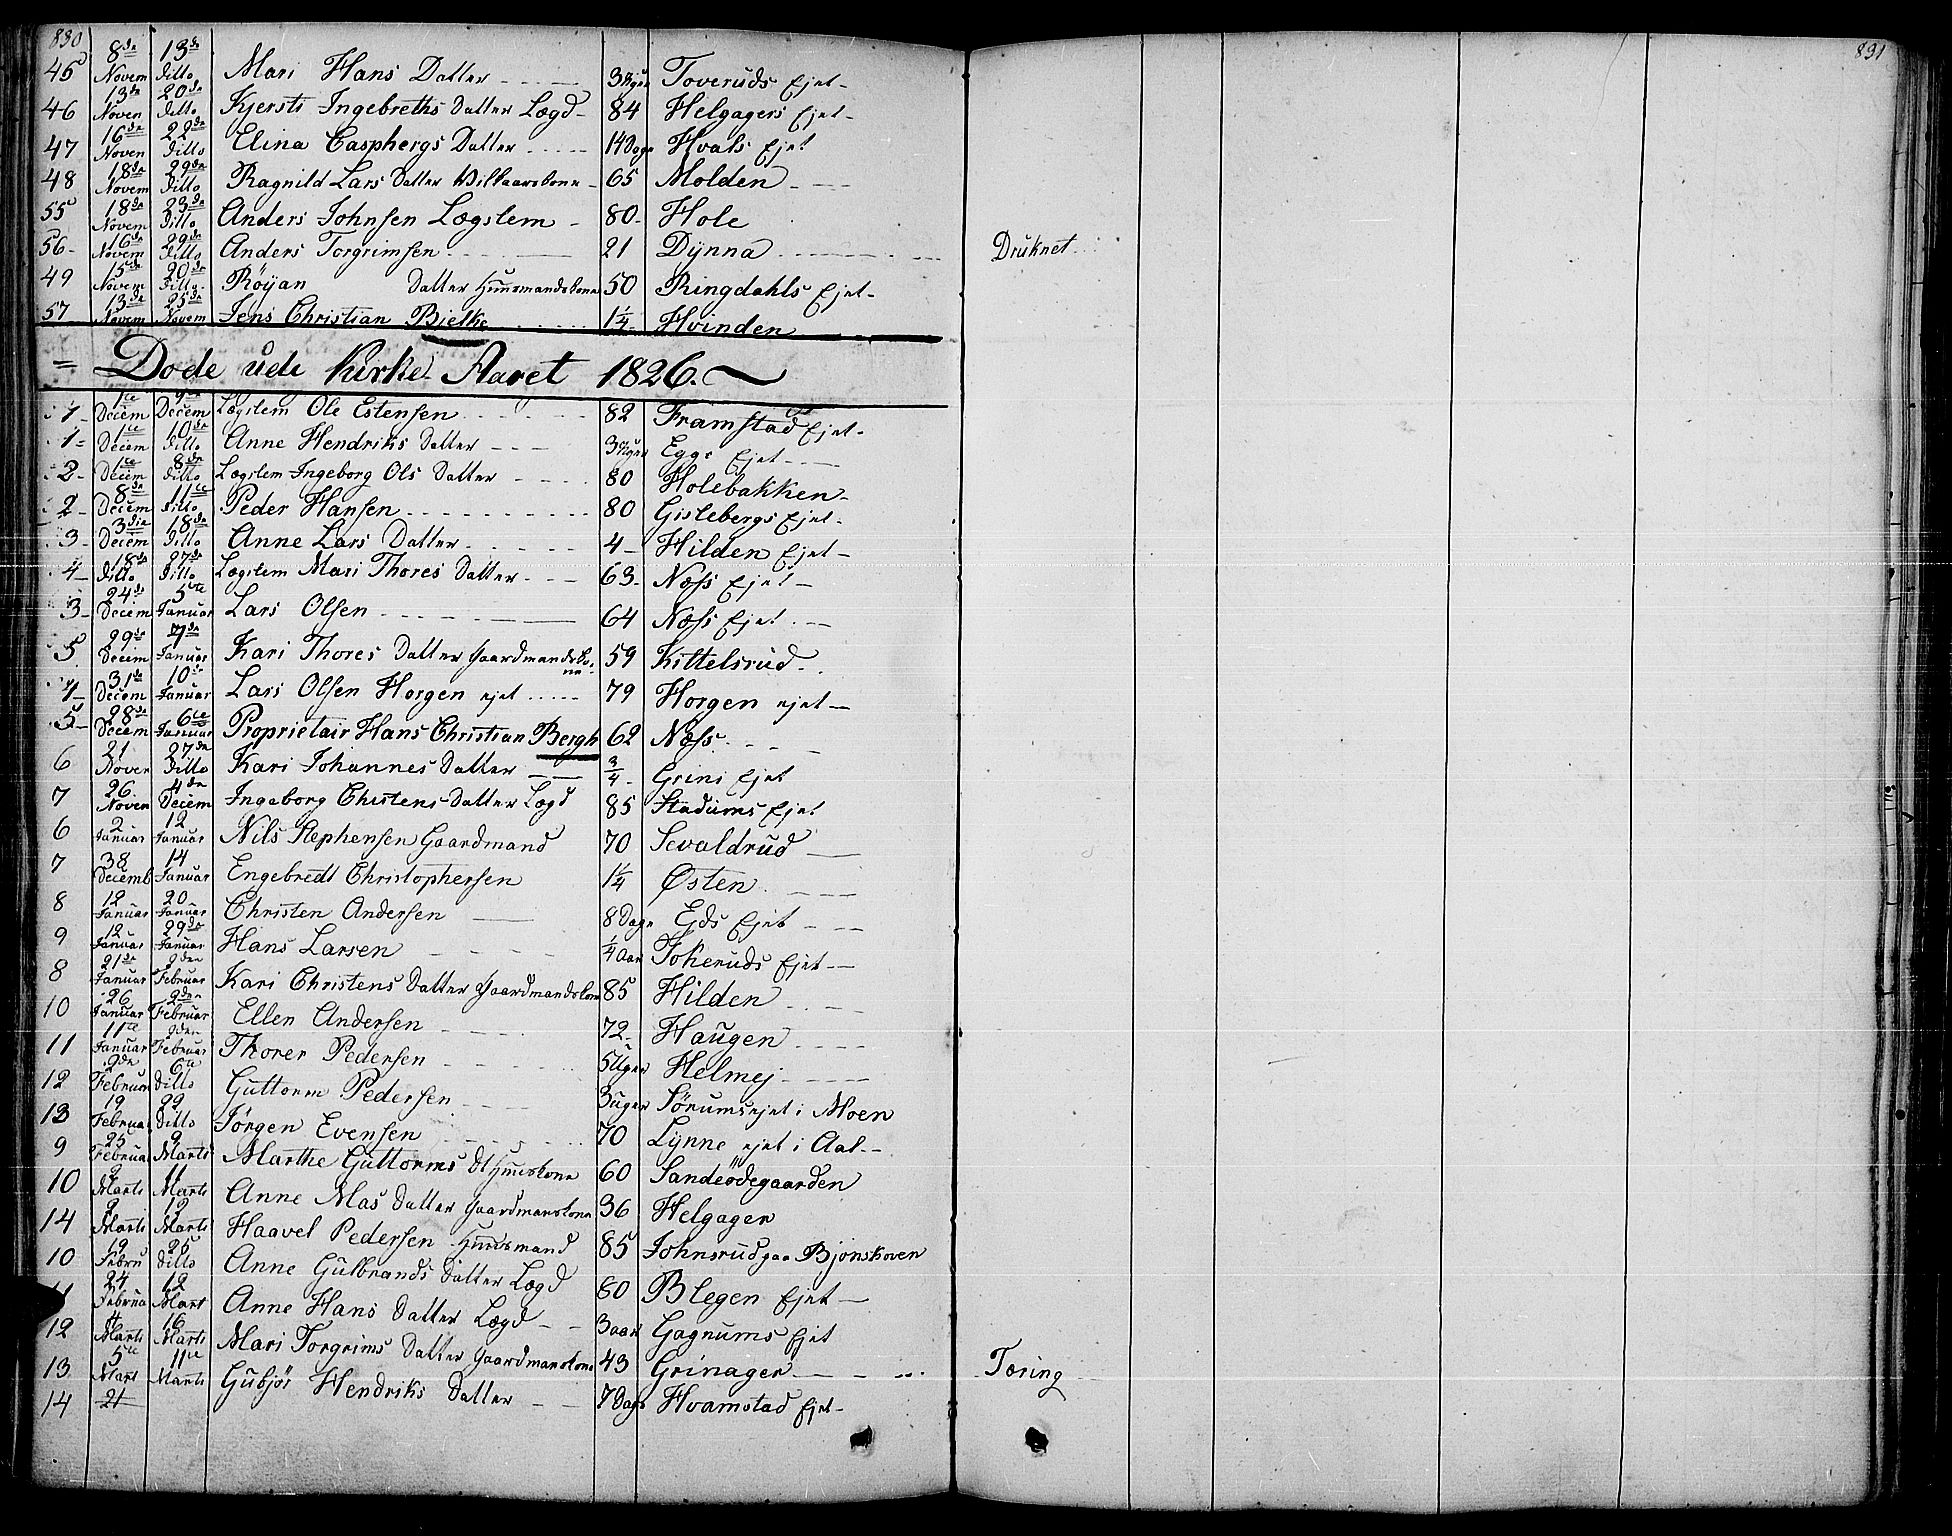 830
45 8de Novem 13de ditto Mari Hans Datter 3 Uger Toveruds Ejet
46 13de Noven 20de ditto Kjersti Ingebreths Datter Lægd 84 Helgagers Ejet
47 16de Noven 22de ditto Elina Casphergs Datter 14 Dage Hvals Ejet
48 18de Novem 29de ditto Ragnild Lars Datter Wilkaarskone 65 Molden
55 18de Novem 23de ditto Anders Johnsen Lægslem 80 Hole
56 16de Novem 29de ditto Anders Torgrimsen 21 Dÿnna Druknet
49 15de Novem 20de ditto Röÿan Datter Huusmandskone 50 Ringdahls Ejet
57 13de Novem 25de Novem Jens Christian Bjelke 1 1/4 Hvinden
= Dode udi Kirke Aaret 1826.
1 1te Decem 9de Decem Lægslem Ole Estensen 82 Framstad Ejet
1 1te Decem 10de ditto Anne Hendriks Datter 3 Uger Egge Ejet
2 1te Decem 8de ditto Lægslem Ingeborg Ols Datter 80 Holebakken
2 8de Decem 11te ditto Peder Hansen 80 Gislebergs Ejet
3 3die Decem 18de ditto Anne Lars Datter 4 Hilden Ejet
4 18de ditto 27de ditto Lægslem Mari Thores Datter 63 Næss Ejet
3 24de Decem 5te Januar Lars Olsen 64 Næss Ejet
5 29de Decem 7de Januar Kari Thores Datter Gaardmandskone 59 Kittelsrud
4 31te Decem 10de Januar Lars Olsen Horgen ejet 79 Horgen ejet
5 28de Decem 6te Januar Proprietair Hans Christian Bergh 62 Næss
6 21 Nover 27de ditto Kari Johannes Datter 3/4 Grini Ejet
7 26. Noven 4de Decem Ingeborg Christens Datter Lægd 85 Stadums Ejet
6 2 Januar 12 Januar Nils Stephensen Gaardmand 70 Sevaldrud
7 38 Decemb 14 Januar Engebredt Christophersen 1 1/4 Østen
8 12 Januar 20 Januar Christen Andersen 8 Dage Eds Ejet
9 12 Januar 29de Januar Hans Larsen 1/4 Aar Tokeruds Ejet
8 21de Januar 2den Februar Kari Christens Datter Gaardmandskone 85 Hilden
10 26 Januar 2den Februar Ellen Andersen 72 Haugen
11 11te Januar 2den Februar Thorer Pedersen 5 Uger Helmej
12 2den Februar 6te ditto Guttorm Pedersen 3 uger Sörumsejet i Moen
13 19 Februar 29 ditto Jörgen Evensen 70 Lÿnne ejet i Aal
9 25 Februar 2 Marti Marthe Guttorms Dt Huuskone 60 Sandeödegaarden
10 2 Marti 11 Marti Anne Mas Datter Gaardmanskone 36 Helgager
14 2 Marti 12 Marti Haavel Pedersen Huusmand 85 Johnsrud paa Bjönskoven
10 19 Febru 25 ditto Anne Gulbrands Datter Lægd 80 Blegen Ejet
11 24 Februa 12 Mart Anne Hans Datter Lægd 3 aar Gagnums Ejet
12 4 Marti 16 Marti Mari Torgrims Datter Gaardmanskone 43 Grinager Tæring
13 5te Mart 11te Marti Gubjör Hendriks Datter 7 Dage Hvamstad Ejet
14 21
831